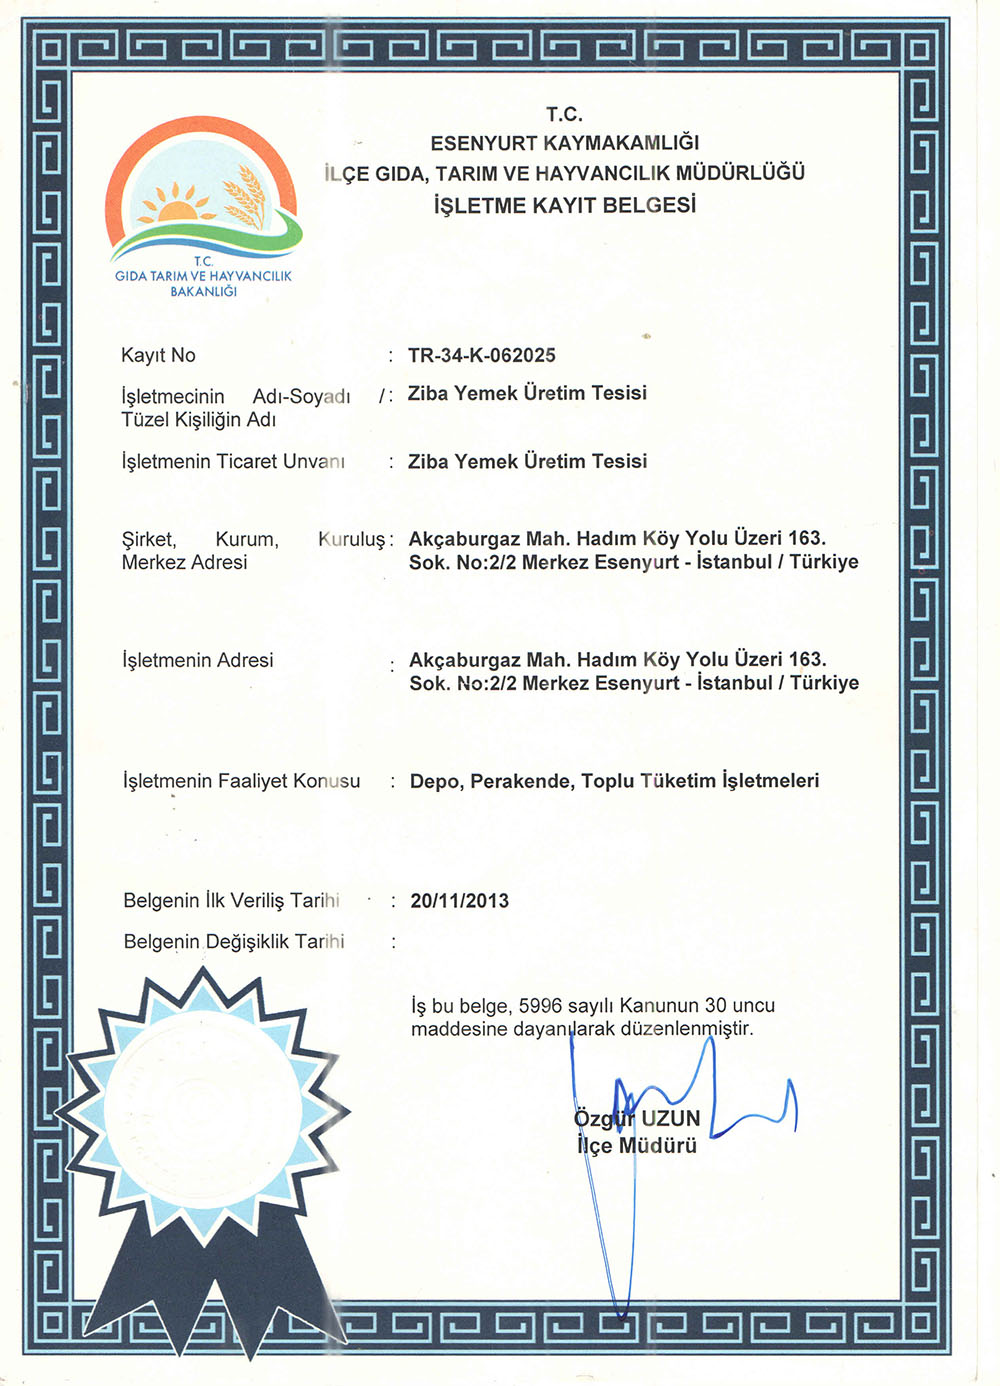 T.C.
ESENYURT KAYMAKAMLIĞI
İLÇE GIDA, TARIM VE HAYVANCILIK MÜDÜRLÜĞÜ
İŞLETME KAYIT BELGESİ
T.C.
GIDA TARIM VE HAYVANCILIK
BAKANLIĞI
Kayıt No : TR-34-K-062025
İşletmecinin Adı-Soyadı /: Ziba Yemek Üretim Tesisi
Tüzel Kişiliğin Adı
İşletmenin Ticaret Unvanı : Ziba Yemek Üretim Tesisi
Şirket, Kurum, Kuruluş : Akçaburgaz Mah. Hadım Köy Yolu Üzeri 163.
Merkez Adresi Sok. No:2/2 Merkez Esenyurt - İstanbul / Türkiye
İşletmenin Adresi : Akçaburgaz Mah. Hadım Köy Yolu Üzeri 163.
Sok. No:2/2 Merkez Esenyurt - İstanbul / Türkiye
İşletmenin Faaliyet Konusu : Depo, Perakende, Toplu Tüketim İşletmeleri
Belgenin İlk Veriliş Tarihi : 20/11/2013
Belgenin Değişiklik Tarihi :
İş bu belge, 5996 sayılı Kanunun 30 uncu
maddesine dayanılarak düzenlenmiştir.
Özgür UZUN
İlçe Müdürü